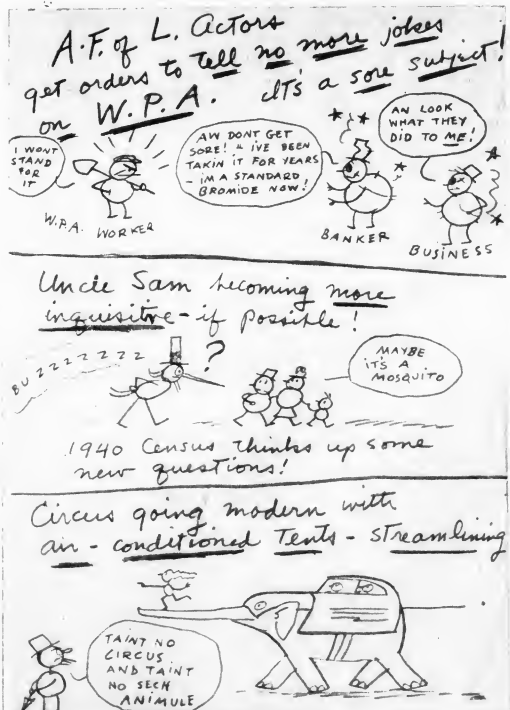 A.F. of L. Actors
get orders to tell no more jokes
on W.P.A. It's a sore subject!
I WONT
STAND
FOR
IT
W.P.A. WORKER
AW DONT GET
SORE! IVE BEEN
TAKIN IT FOR YEARS
- IM A STANDARD
BROMIDE NOW!
BANKER
AN LOOK
WHAT THEY
DID TO ME!
BUSINESS
Uncle Sam becoming more
inquisitive - if possible!
BUZZZZZZZ
?
MAYBE
IT'S A
MOSQUITO
1940 Census thinks up some
new questions!
Circus going modern with
air-conditioned Tents - streamlining
TAINT NO
CIRCUS
AND TAINT
NO SECH
ANIMULE